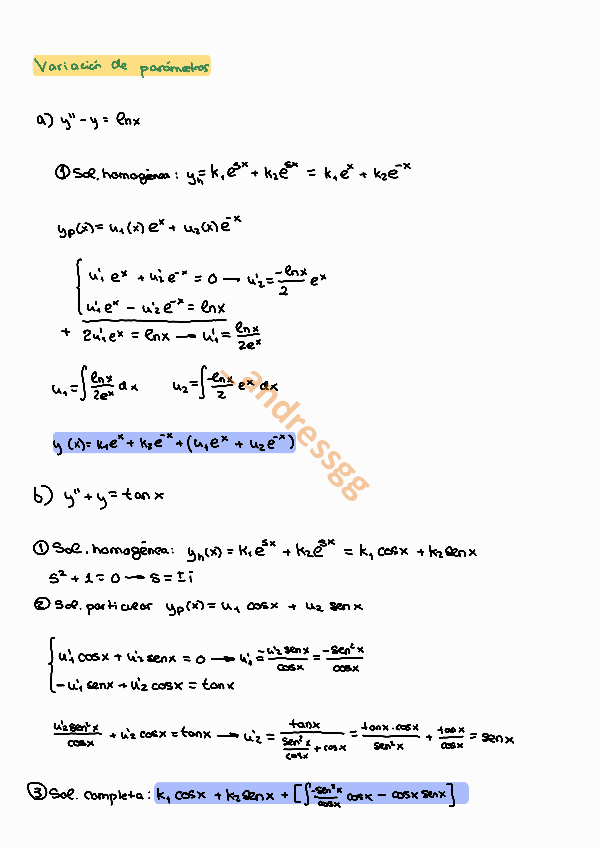 Variación de parámetros
a) y'' - y = lnx
① Sol. homogénea: yₕ = k₁e^sx + k₂e^sx = k₁e^x + k₂e^-x
yp(x) = u₁(x) e^x + u₂(x) e^-x
u₁' e^x + u₂' e^-x = 0 → u₂' = -lnx/2 e^x
u₁' e^x - u₂' e^-x = lnx
+ 2u₁' e^x = lnx → u₁' = lnx/2e^x
u₁ = ∫ lnx/2e^x dx u₂ = ∫ -lnx/2 e^x dx
y(x) = k₁e^x + k₂e^-x + (u₁e^x + u₂e^-x)
~andressgg
b) y'' + y = tan x
① Sol. homogénea: yₕ(x) = k₁e^sx + k₂e^sx = k₁ cosx + k₂ senx
s² + 1 = 0 → s = ±i
② Sol. particular yp(x) = u₁ cosx + u₂ senx
u₁' cosx + u₂' senx = 0 → u₁' = -u₂' senx/cosx = -sen²x/cosx
-u₁' senx + u₂' cosx = tanx
u₂' sen²x/cosx + u₂' cosx = tanx → u₂' = tanx/(sen²x/cosx + cosx) = tanx·cosx/sen²x + tanx/cosx = senx
③ Sol. completa: k₁ cosx + k₂ senx + [∫ -sen²x/cosx cosx - cosx senx]